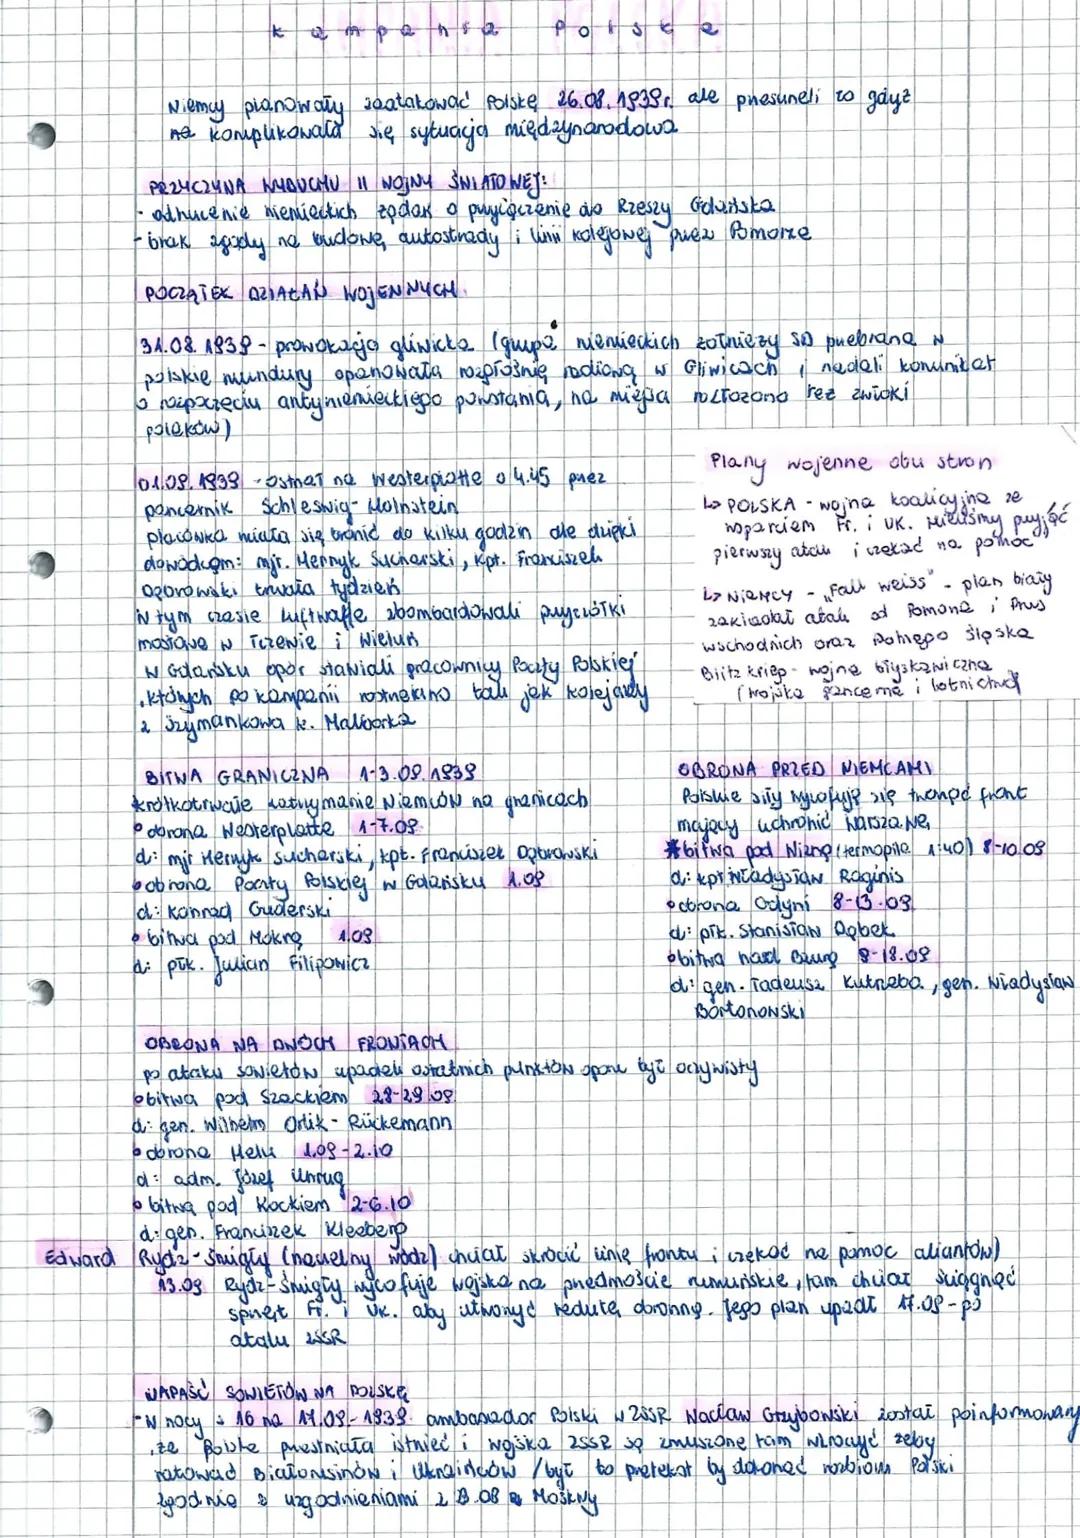 Kampania Polska
Niemcy planowały zaatakować Polskę 26.08.1939r. ale przesuneli to gdyż
na komplikowała się sytuacja międzynarodowa
PRZYCZYNA WYBUCHU II WOJNY ŚWIATOWEJ:
- odrzucenie niemieckich żądań o przyłączenie do Rzeszy Gdańska
- brak zgody na budowę autostrady i linii kolejowej przez Pomorze
POCZĄTEK DZIAŁAŃ WOJENNYCH
31.08.1939 - prowokacja gliwicka (grupa niemieckich żołnierzy SD przebrana w
polskie mundury opanowała rozgłośnię radiową w Gliwicach i nadali komunikat
o rozpoczęciu antyniemieckiego powstania, na miejsca rozłożono też zwłoki
polaków)
01.09.1939 - ostrzał na Westerplatte o 4.45 przez
pancernik Schleswig-Holnstein
placówka miała się bronić do kilku godzin ale dzięki
dowódcom: mjr. Henryk Sucharski, kpt. Franciszek
Dąbrowski trwała tydzień
W tym czasie luftwaffe zbombardowali przyczółki
mostowe w Tczewie i Wieluń
W Gdańsku opór stawiali pracownicy Poczty Polskiej
, których po kampanii rozstrzelano tak jak kolejarzy
z Szymankowa k. Malborka
Plany wojenne obu stron
↳ POLSKA - wojna koalicyjna ze
wsparciem Fr. i UK. Mieliśmy przyjąć
pierwszy atak i czekać na pomoc
↳ NIEMCY - „Fall weiss" - plan biały
zakładał atak od Pomorza i Prus
wschodnich oraz Dolnego śląska
Blitz krieg - wojna błyskawiczna
(wojska pancerne i lotnictwo)
BITWA GRANICZNA 1-3.09.1939
krótkotrwałe zatrzymanie Niemców na granicach
• obrona Westerplatte 1-7.09
d: mjr Henryk Sucharski, kpt. Franciszek Dąbrowski
• obrona Poczty Polskiej w Gdańsku 1.09
d: Konrad Guderski
• bitwa pod Mokrą 1.09
d: płk. Julian Filipowicz
OBRONA PRZED NIEMCAMI
Polskie siły wycofują się tworząc front
mający uchronić Warszawę
* bitwa pod Wizną (termopile 1:40) 8-10.09
d: kpt Władysław Raginis
• obrona Gdyni 8-13.09
d: płk. Stanisław Dąbek
• bitwa nad Bzurą 9-18.09
d: gen. Tadeusz Kutrzeba, gen. Władysław
Bortonowski
OBRONA NA DWÓCH FRONTACH
po ataku sowietów upadek ostatnich punktów oporu był oczywisty
• bitwa pod Szackiem 28-29.09
d: gen. Wilhelm Orlik-Rückemann
• obrona Helu 1.09-2.10
d: adm. Józef Unrug
• bitwa pod Kockiem 2-6.10
d: gen. Franciszek Kleeberg
Edward Rydz-Śmigły (naczelny wódz) chciał skrócić linię frontu i czekać na pomoc aliantów)
13.09 Rydz-Śmigły wycofuje wojska na przedmoście rumuńskie, tam chciał ściągnąć
sprzęt Fr. i UK. aby utworzyć redutę obronną. Jego plan upadł 17.09 - po
ataku ZSSR
NAPAŚĆ SOWIETÓW NA POLSKĘ
- W nocy z 16 na 17.09.1939 ambasador Polski w ZSSR Wacław Grzybowski został poinformowany
, że Polska przestniała istnieć i wojska ZSSR są zmuszone tam wkroczyć żeby
ratować Białorusinów i Ukraińców / był to pretekst by dokonać rozbioru Polski
zgodnie z uzgodnieniami z 23.08 z Moskwy